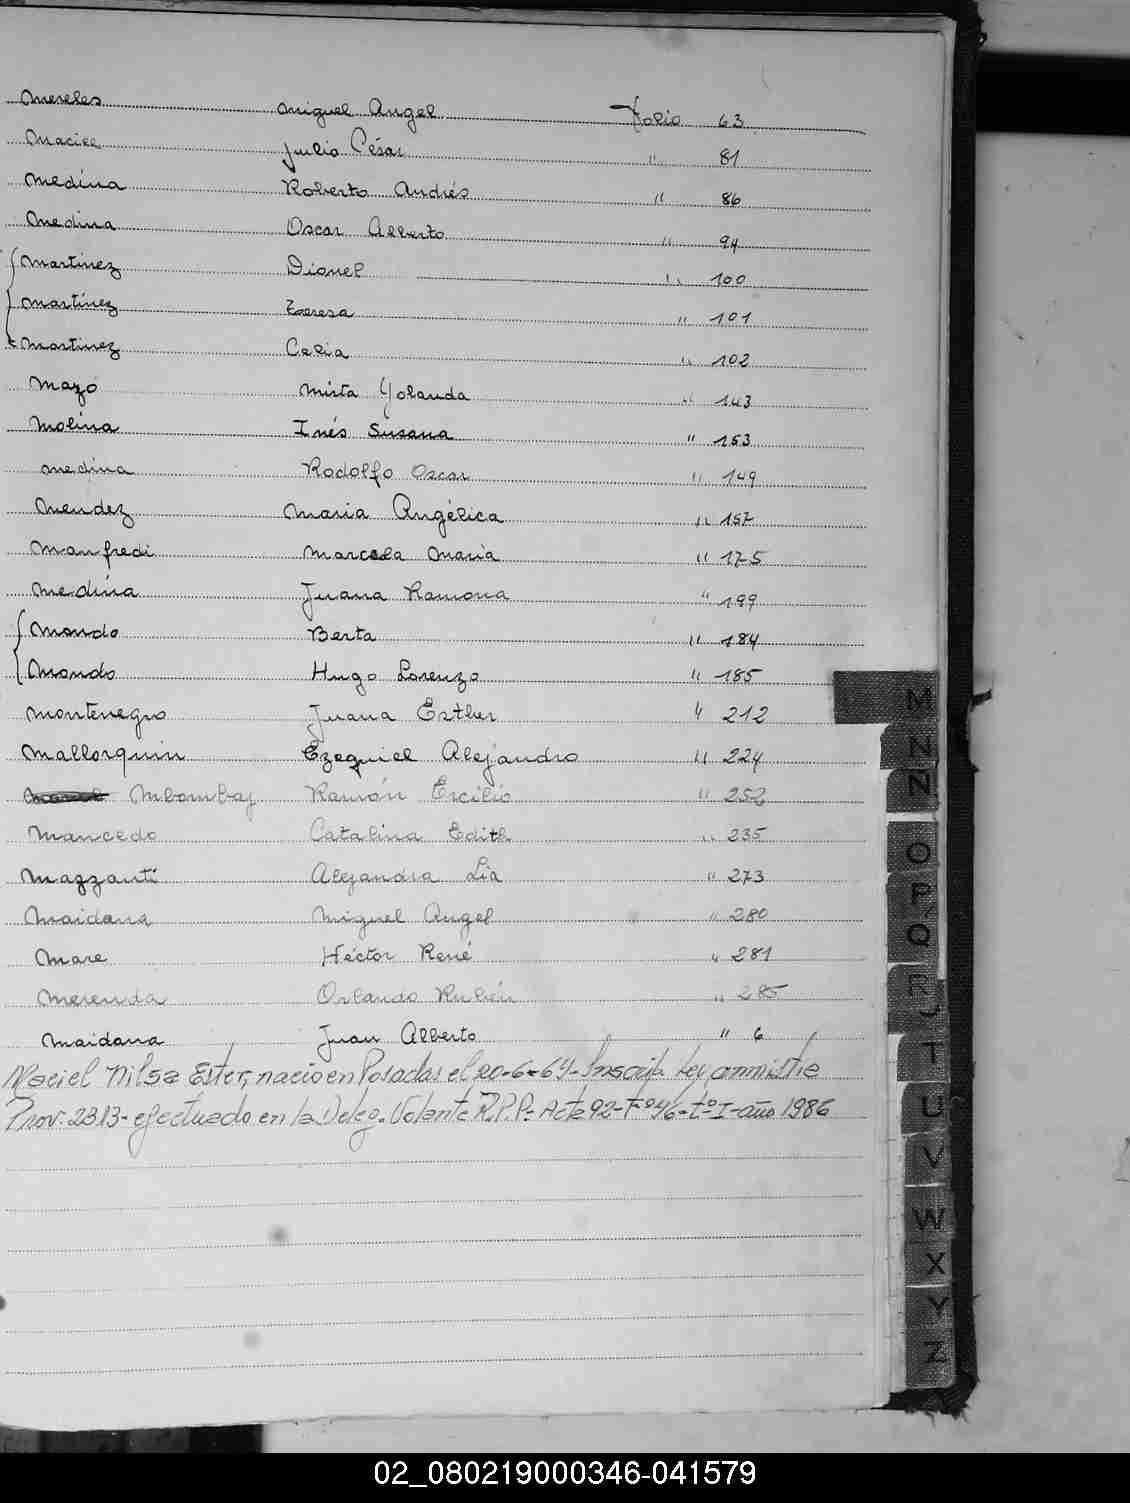 Mereles Miguel Angel Folio 63
Maciel Julio César " 81
Medina Roberto Andrés " 86
Medina Oscar Alberto " 94
Martinez Dionel " 100
Martínez Teresa " 101
Martinez Celia " 102
Mazó Mirta Yolanda " 143
Molina Inés Susana " 153
Medina Rodolfo Oscar " 149
Mendez Maria Angélica " 157
Manfredi Marcela Maria " 175
Medina Juana Ramona " 199
Mondo Berta " 184
Mondo Hugo Lorenzo " 185
Montenegro Juana Esther " 212
Mallorquin Ezequiel Alejandro " 224
Mbombaj Ramón Ercilio " 252
Mancedo Catalina Edith " 235
Mazzanti Alejandra Lia " 273
Maidana Miguel Angel " 280
Mare Héctor René " 281
Merenda Orlando Rubén " 285
Maidana Juan Alberto " 6
Maciel Nilsa Ester, nacio en Posadas el 20-6-64- Inscrip. Ley amnistia
Prov. 2313- efectuado en la Deleg. Volante R.P.P- Acta 92- Fº 46- tº I- año 1986
M
N
Ñ
O
P
Q
R
T
U
V
W
X
Y
Z
02_080219000346-041579